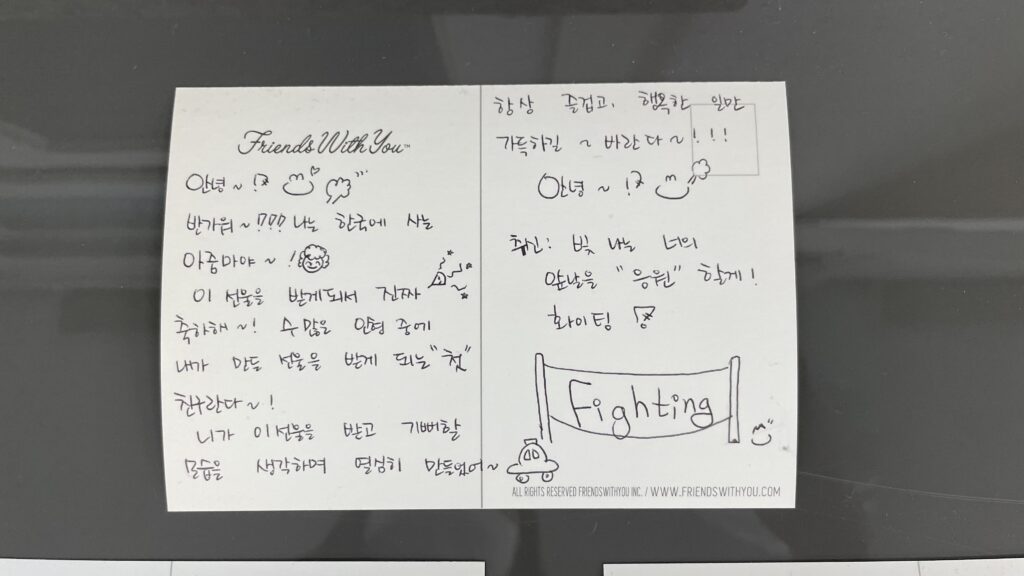 Friends With You™
안녕~!?
반가워~??? 나는 한국에 사는
아줌마야~!
이 선물을 받게되서 진짜
축하해~! 수 많은 인형 중에
내가 만든 선물을 받게 되는 "첫"
친구란다~!
니가 이선물을 받고 기뻐할
모습을 생각하며 열심히 만들었어~
항상 즐겁고, 행복한 일만
가득하길 ~ 바란다~!!!
안녕~!?
추신: 빛 나는 너의
앞날을 "응원" 할게!
화이팅
Fighting
ALL RIGHTS RESERVED FRIENDSWITHYOU INC. / WWW.FRIENDSWITHYOU.COM